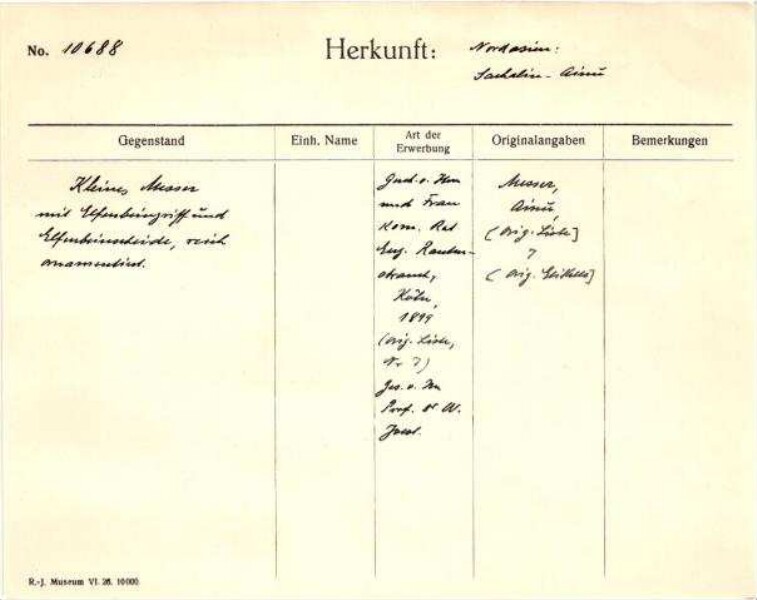 No. 10688
Herkunft: Nordasien:
Sachalin-Ainu
Gegenstand
Einh. Name
Art der
Erwerbung
Originalangaben
Bemerkungen
Kleines Messer
mit Elfenbeingriff und
Elfenbeinscheide, reich
ornamentiert.
v. Herrn
und Frau
Kom. Rat
Eug. Rauten-
strauch,
Köln,
1899
(orig. Liste,
Nr 7)
Ges. v. Hn
Prof. Dr W.
Joest.
Messer,
Ainu,
(orig. Liste]
7
(orig. Etikette]
R.-J. Museum VI. 26. 10000.